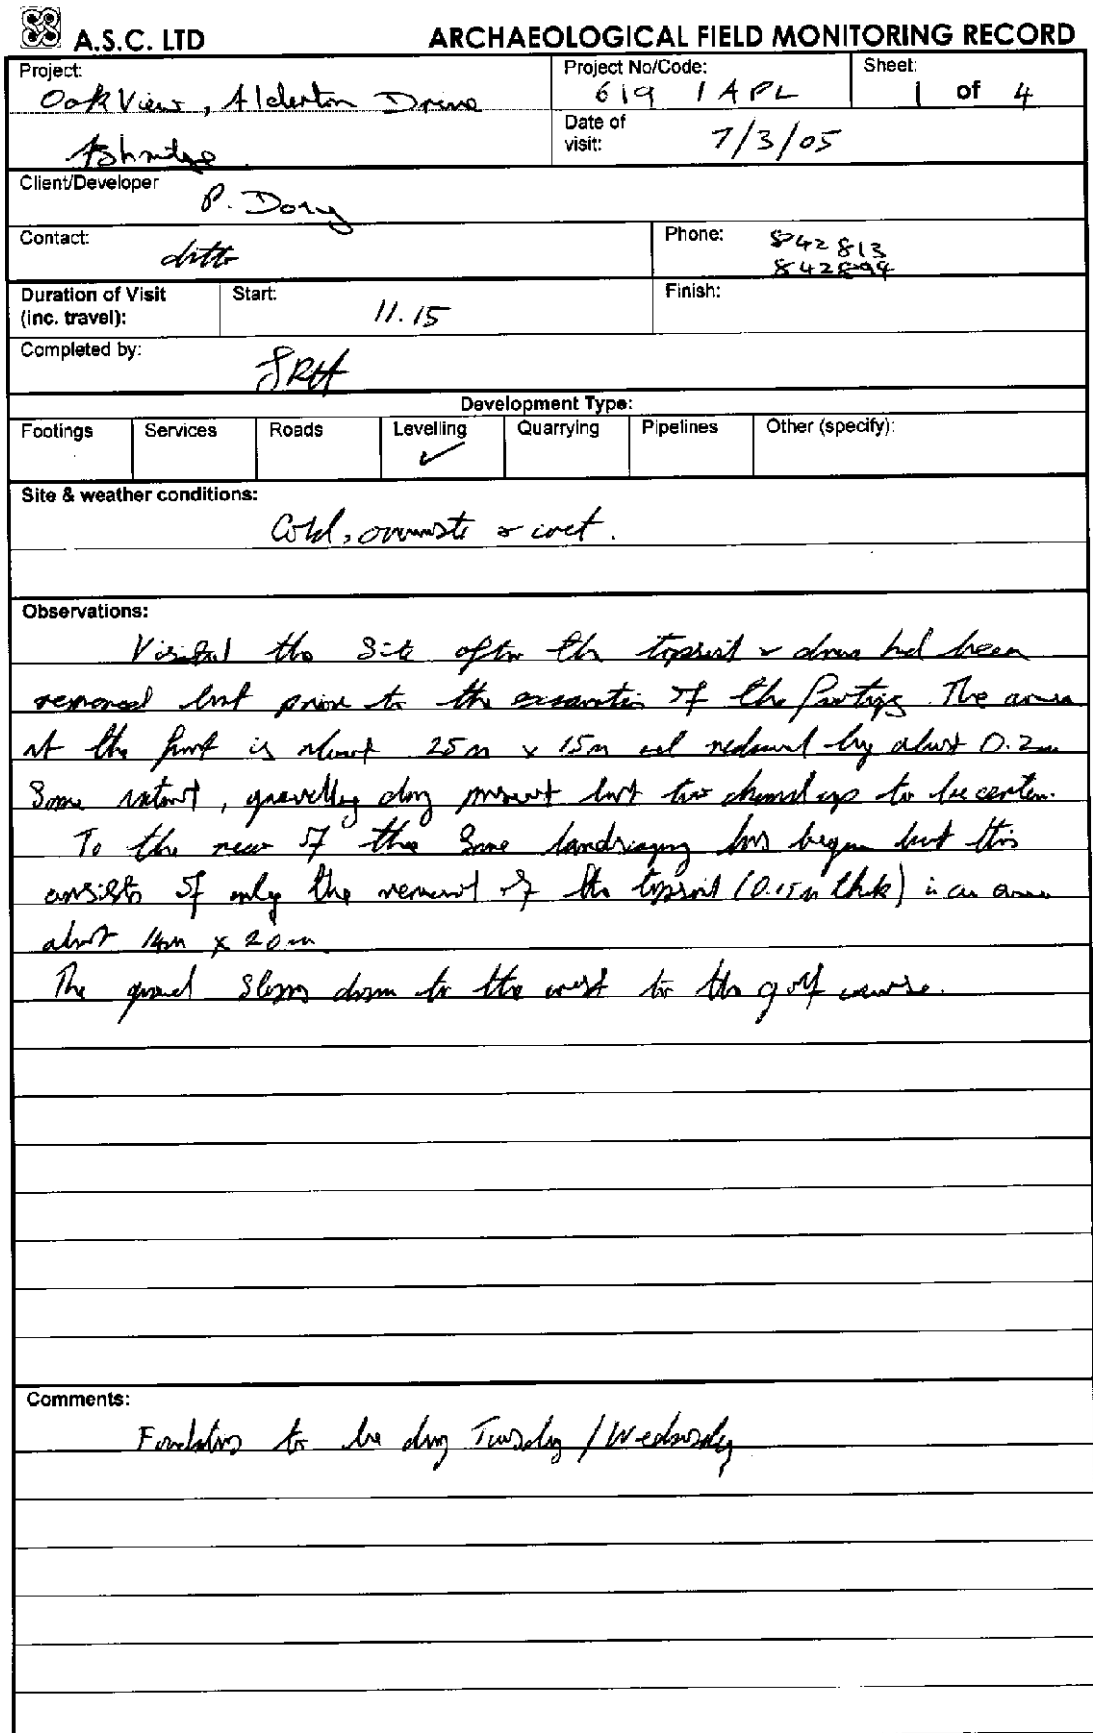 A.S.C. LTD ARCHAEOLOGICAL FIELD MONITORING RECORD
Project: Oak View, Alderton Drive
Ashridge
Project No/Code: 619 / APL
Sheet: 1 of 4
Date of visit: 7/3/05
Client/Developer P. Dory
Contact: ditto
Phone: 842813
Duration of Visit (inc. travel): Start: 11.15 Finish:
Completed by: JRH
Development Type:
Footings Services Roads Levelling ✓ Quarrying Pipelines Other (specify):
Site & weather conditions:
Cold, & wet.
Observations:
Visited the site after the topsoil & had been
removed but prior to the excavation of the footings. The area
at the front is about 25m x 15m reduced by about 0.2m
Some, gravelly clay present but too to be certain.
To the rear of the some landscaping has begun but this
consists of only the removal of the topsoil (0.15m thick) in an area
about 14m x 20m
The ground slopes down to the west to the golf course.
Comments:
Foundations to be dug Tuesday / Wednesday